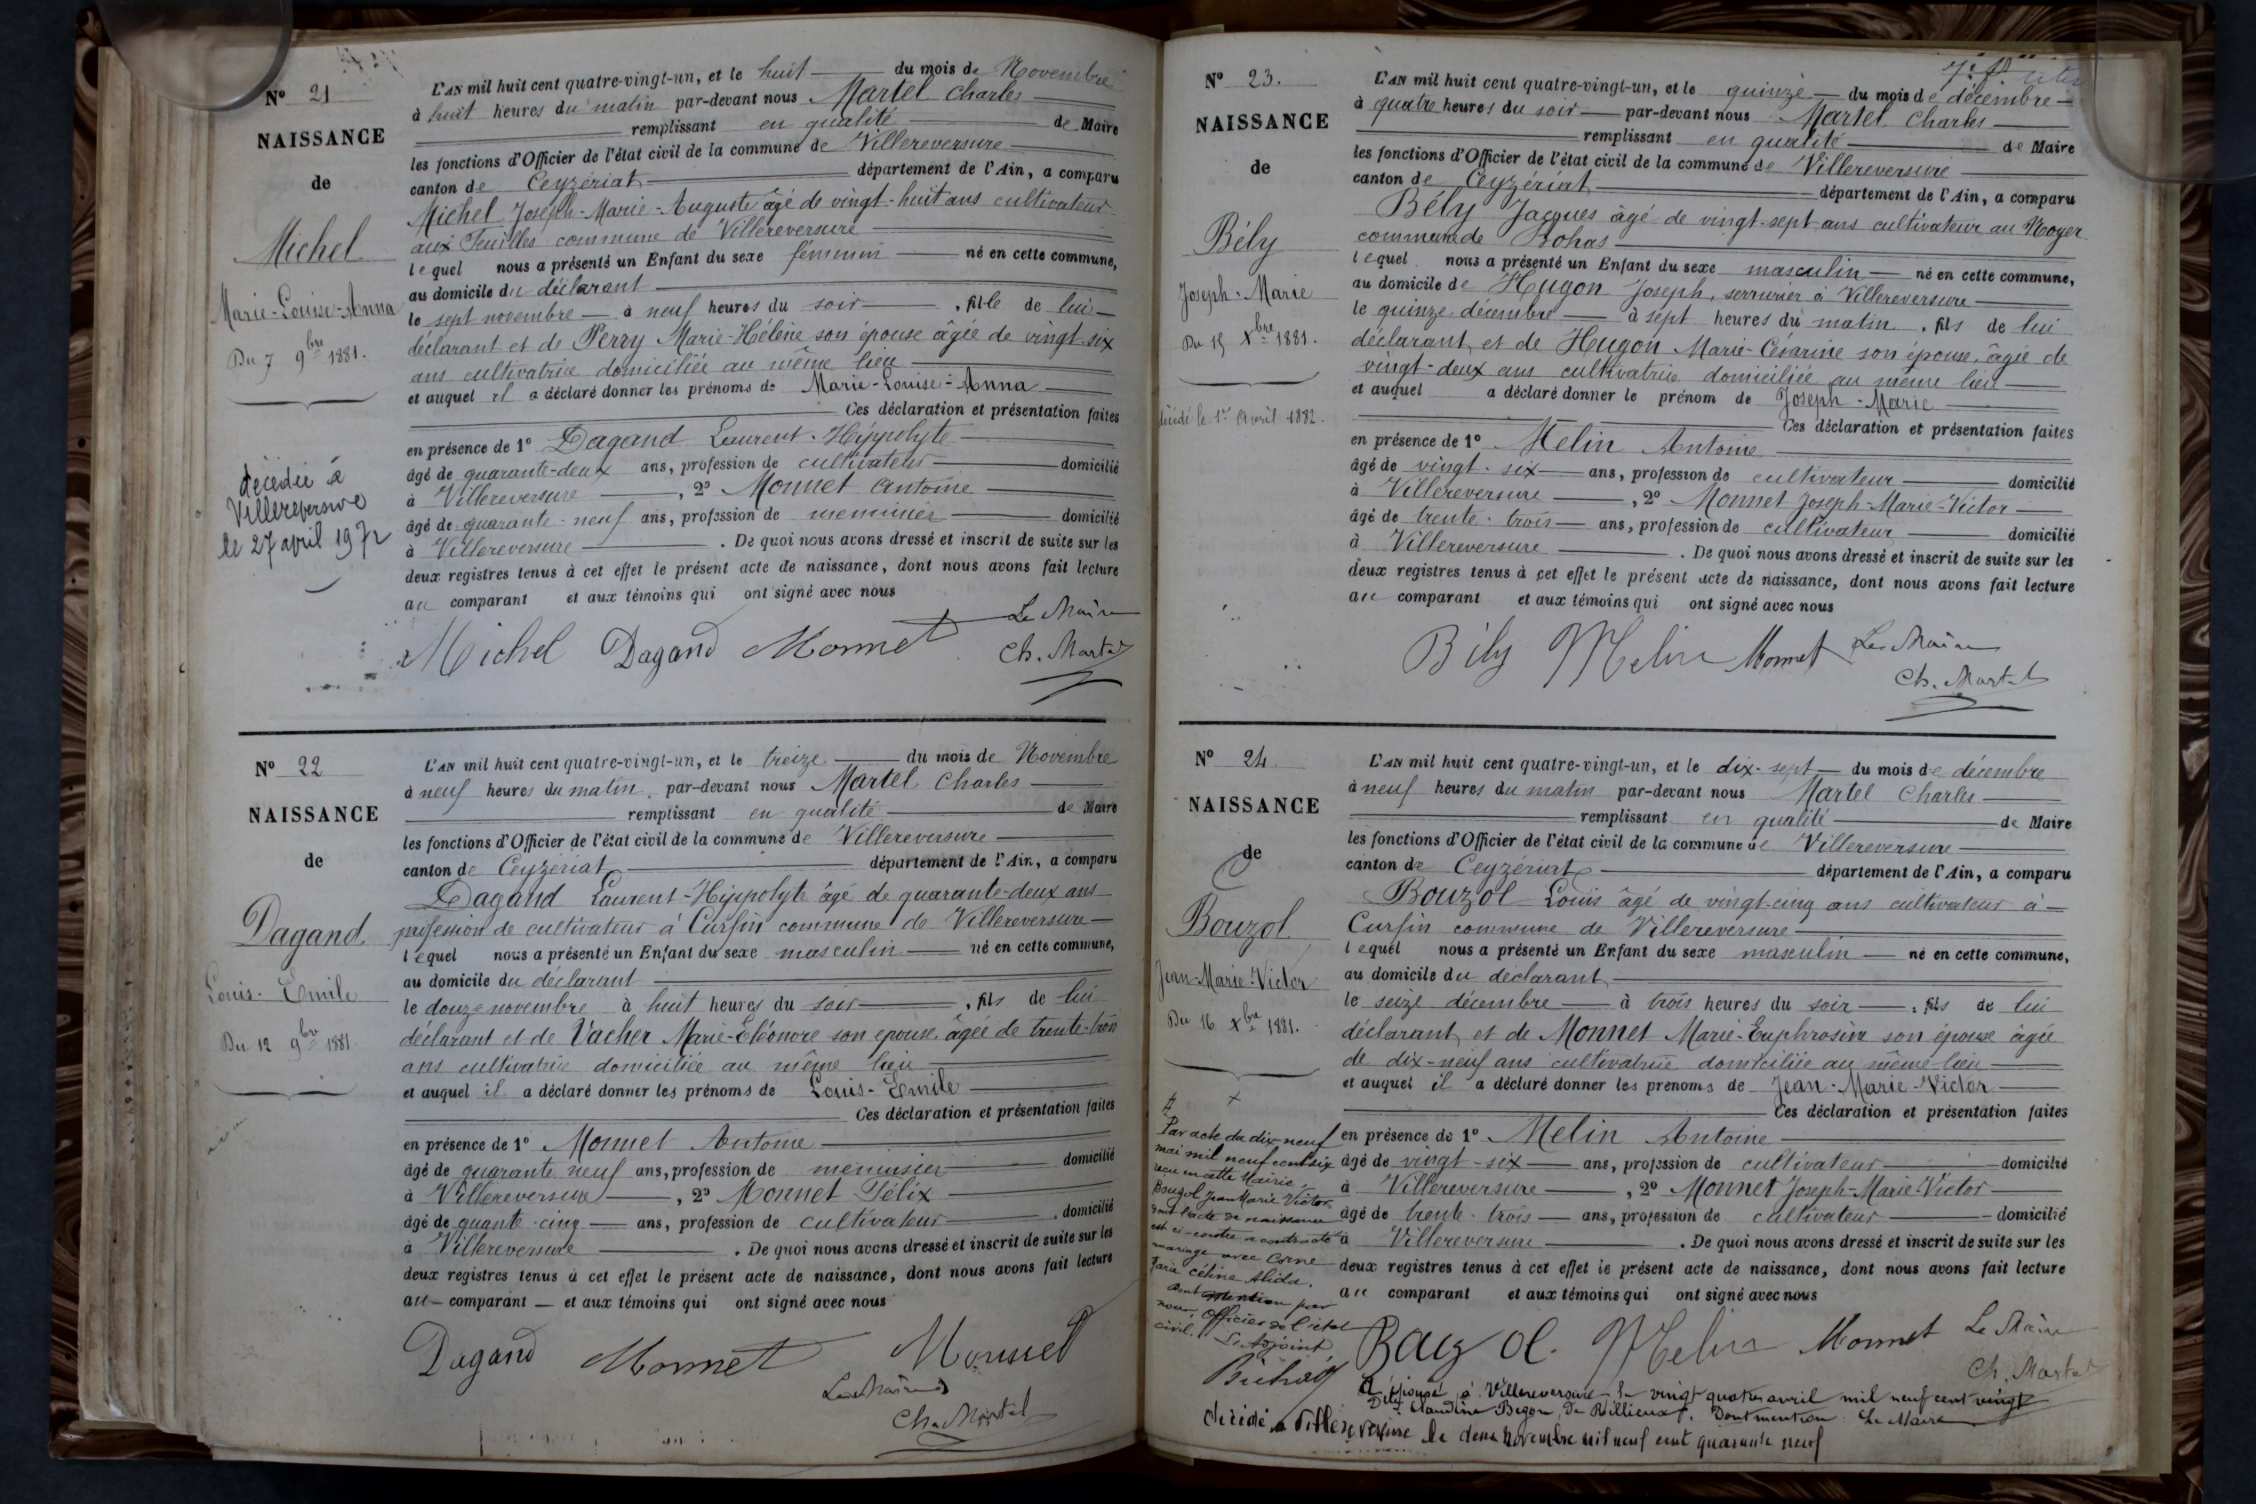 Nº 21
NAISSANCE
de
Michel
Marie-Louise-Anna
Du 7 9bre 1881.
décédée à
Villereversure
le 27 avril 1972
L'AN mil huit cent quatre-vingt-un, et le huit du mois de Novembre
à huit heures du matin par-devant nous Martel Charles
remplissant en qualité de Maire
les fonctions d'Officier de l'état civil de la commune de Villereversure
canton de Ceyzériat département de l'Ain, a comparu
Michel Joseph-Marie-Auguste âgé de vingt-huit ans cultivateur
aux Feuilles commune de Villereversure
lequel nous a présenté un Enfant du sexe féminin né en cette commune,
au domicile du déclarant
le sept novembre à neuf heures du soir, fille de lui
déclarant et de Perry Marie-Hélène son épouse âgée de vingt-six
ans cultivatrice domiciliée au même lieu
et auquel il a déclaré donner les prénoms de Marie-Louise-Anna
Ces déclaration et présentation faites
en présence de 1º Dagand Laurent-Hippolyte
âgé de quarante-deux ans, profession de cultivateur domicilié
à Villereversure, 2º Monnet Antoine
âgé de quarante-neuf ans, profession de menuisier domicilié
à Villereversure. De quoi nous avons dressé et inscrit de suite sur les
deux registres tenus à cet effet le présent acte de naissance, dont nous avons fait lecture
au comparant et aux témoins qui ont signé avec nous
Michel Dagand Monnet Le Maire
Ch. Martel
Nº 22
NAISSANCE
de
Dagand
Louis-Emile
Du 12 9bre 1881
L'AN mil huit cent quatre-vingt-un, et le treize du mois de Novembre
à neuf heures du matin, par-devant nous Martel Charles
remplissant en qualité de Maire
les fonctions d'Officier de l'état civil de la commune de Villereversure
canton de Ceyzériat département de l'Ain, a comparu
Dagand Laurent-Hippolyte âgé de quarante-deux ans
profession de cultivateur à Curfin commune de Villereversure
lequel nous a présenté un Enfant du sexe masculin né en cette commune,
au domicile du déclarant
le douze novembre à huit heures du soir, fils de lui
déclarant et de Vacher Marie-Eléonore son épouse âgée de trente-trois
ans cultivatrice domiciliée au même lieu
et auquel il a déclaré donner les prénoms de Louis-Emile
Ces déclaration et présentation faites
en présence de 1º Monnet Antoine
âgé de quarante neuf ans, profession de menuisier domicilié
à Villereversure, 2º Monnet Félix
âgé de quante-cinq ans, profession de cultivateur, domicilié
à Villereversure. De quoi nous avons dressé et inscrit de suite sur les
deux registres tenus à cet effet le présent acte de naissance, dont nous avons fait lecture
au comparant et aux témoins qui ont signé avec nous
Dagand Monnet Monnet
Le Maire
Ch. Martel
Nº 23.
NAISSANCE
de
Bély
Joseph-Marie
Du 15 Xbre 1881.
décédé le 1er Avril 1882.
L'AN mil huit cent quatre-vingt-un, et le quinze du mois de décembre
à quatre heures du soir par-devant nous Martel Charles
remplissant en qualité de Maire
les fonctions d'Officier de l'état civil de la commune de Villereversure
canton de Ceyzériat département de l'Ain, a comparu
Bély Jacques âgé de vingt-sept ans cultivateur au Noyer
commune de Rohas
lequel nous a présenté un Enfant du sexe masculin né en cette commune,
au domicile de Hugon Joseph, serrurier à Villereversure
le quinze décembre à sept heures du matin, fils de lui
déclarant, et de Hugon Marie-Césarine son épouse âgée de
vingt-deux ans cultivatrice domiciliée au même lieu
et auquel a déclaré donner le prénom de Joseph-Marie
Ces déclaration et présentation faites
en présence de 1º Melin Antoine
âgé de vingt-six ans, profession de cultivateur domicilié
à Villereversure, 2º Monnet Joseph-Marie-Victor
âgé de trente-trois ans, profession de cultivateur domicilié
à Villereversure. De quoi nous avons dressé et inscrit de suite sur les
deux registres tenus à cet effet le présent acte de naissance, dont nous avons fait lecture
au comparant et aux témoins qui ont signé avec nous
Bély Melin Monnet Le Maire
Ch. Martel
Nº 24.
NAISSANCE
de
Bouzol
Jean-Marie-Victor
Du 16 Xbre 1881.
Par acte du dix-neuf
mai mil neuf cent six
reçu en cette Mairie,
Bouzol Jean Marie Victor
dont l'acte de naissance
est ci-contre a contracté
mariage avec Corne
Faria Céline Alida.
dont mention par
nous, Officier de l'état
civil. Le Adjoint
L'AN mil huit cent quatre-vingt-un, et le dix-sept du mois de décembre
à neuf heures du matin par-devant nous Martel Charles
remplissant en qualité de Maire
les fonctions d'Officier de l'état civil de la commune de Villereversure
canton de Ceyzériat département de l'Ain, a comparu
Bouzol Louis âgé de vingt-cinq ans cultivateur à
Curfin commune de Villereversure
lequel nous a présenté un Enfant du sexe masculin né en cette commune,
au domicile du déclarant
le seize décembre à trois heures du soir, fils de lui
déclarant, et de Monnet Marie-Euphrosine son épouse âgée
de dix-neuf ans cultivatrice domiciliée au même lieu
et auquel il a déclaré donner les prénoms de Jean-Marie-Victor
Ces déclaration et présentation faites
en présence de 1º Melin Antoine
âgé de vingt-six ans, profession de cultivateur domicilié
à Villereversure, 2º Monnet Joseph-Marie-Victor
âgé de trente-trois ans, profession de cultivateur domicilié
à Villereversure. De quoi nous avons dressé et inscrit de suite sur les
deux registres tenus à cet effet le présent acte de naissance, dont nous avons fait lecture
au comparant et aux témoins qui ont signé avec nous
Bouzol. Melin Monnet Le Maire
Ch. Martel
A épousé à Villereversure le vingt quatre avril mil neuf cent vingt
Claudine Begon, De Rillieux. Dont mention. Le Maire
décédé à Villereversure le deux novembre mil neuf cent quarante neuf